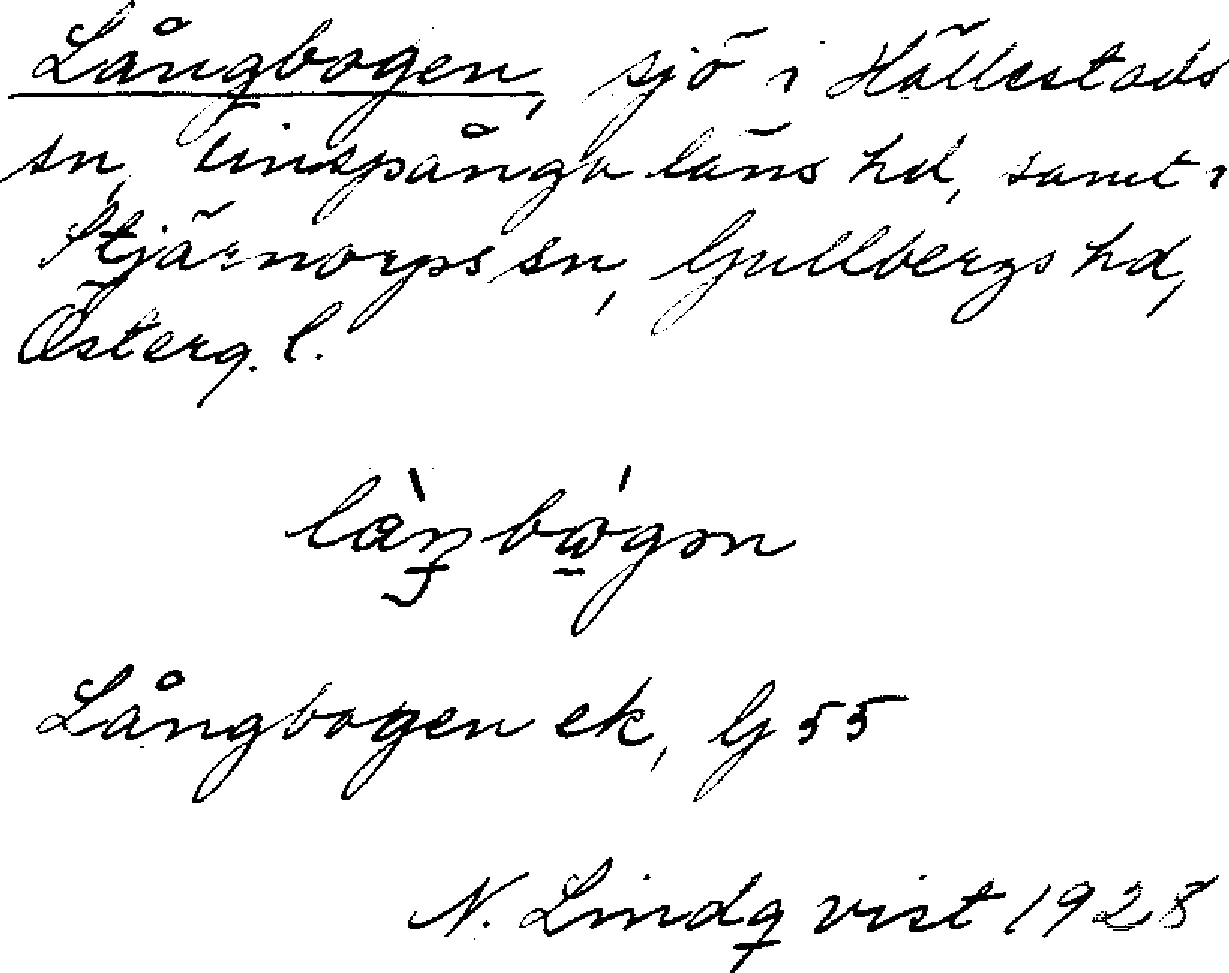 Långbogen, sjö i Hällestads
sn, Finspånga läns hd, samt i
Stjärnorps sn, Gullbergs hd,
Österg. l.
Långbogen ek, G 55
N. Lindqvist 1928